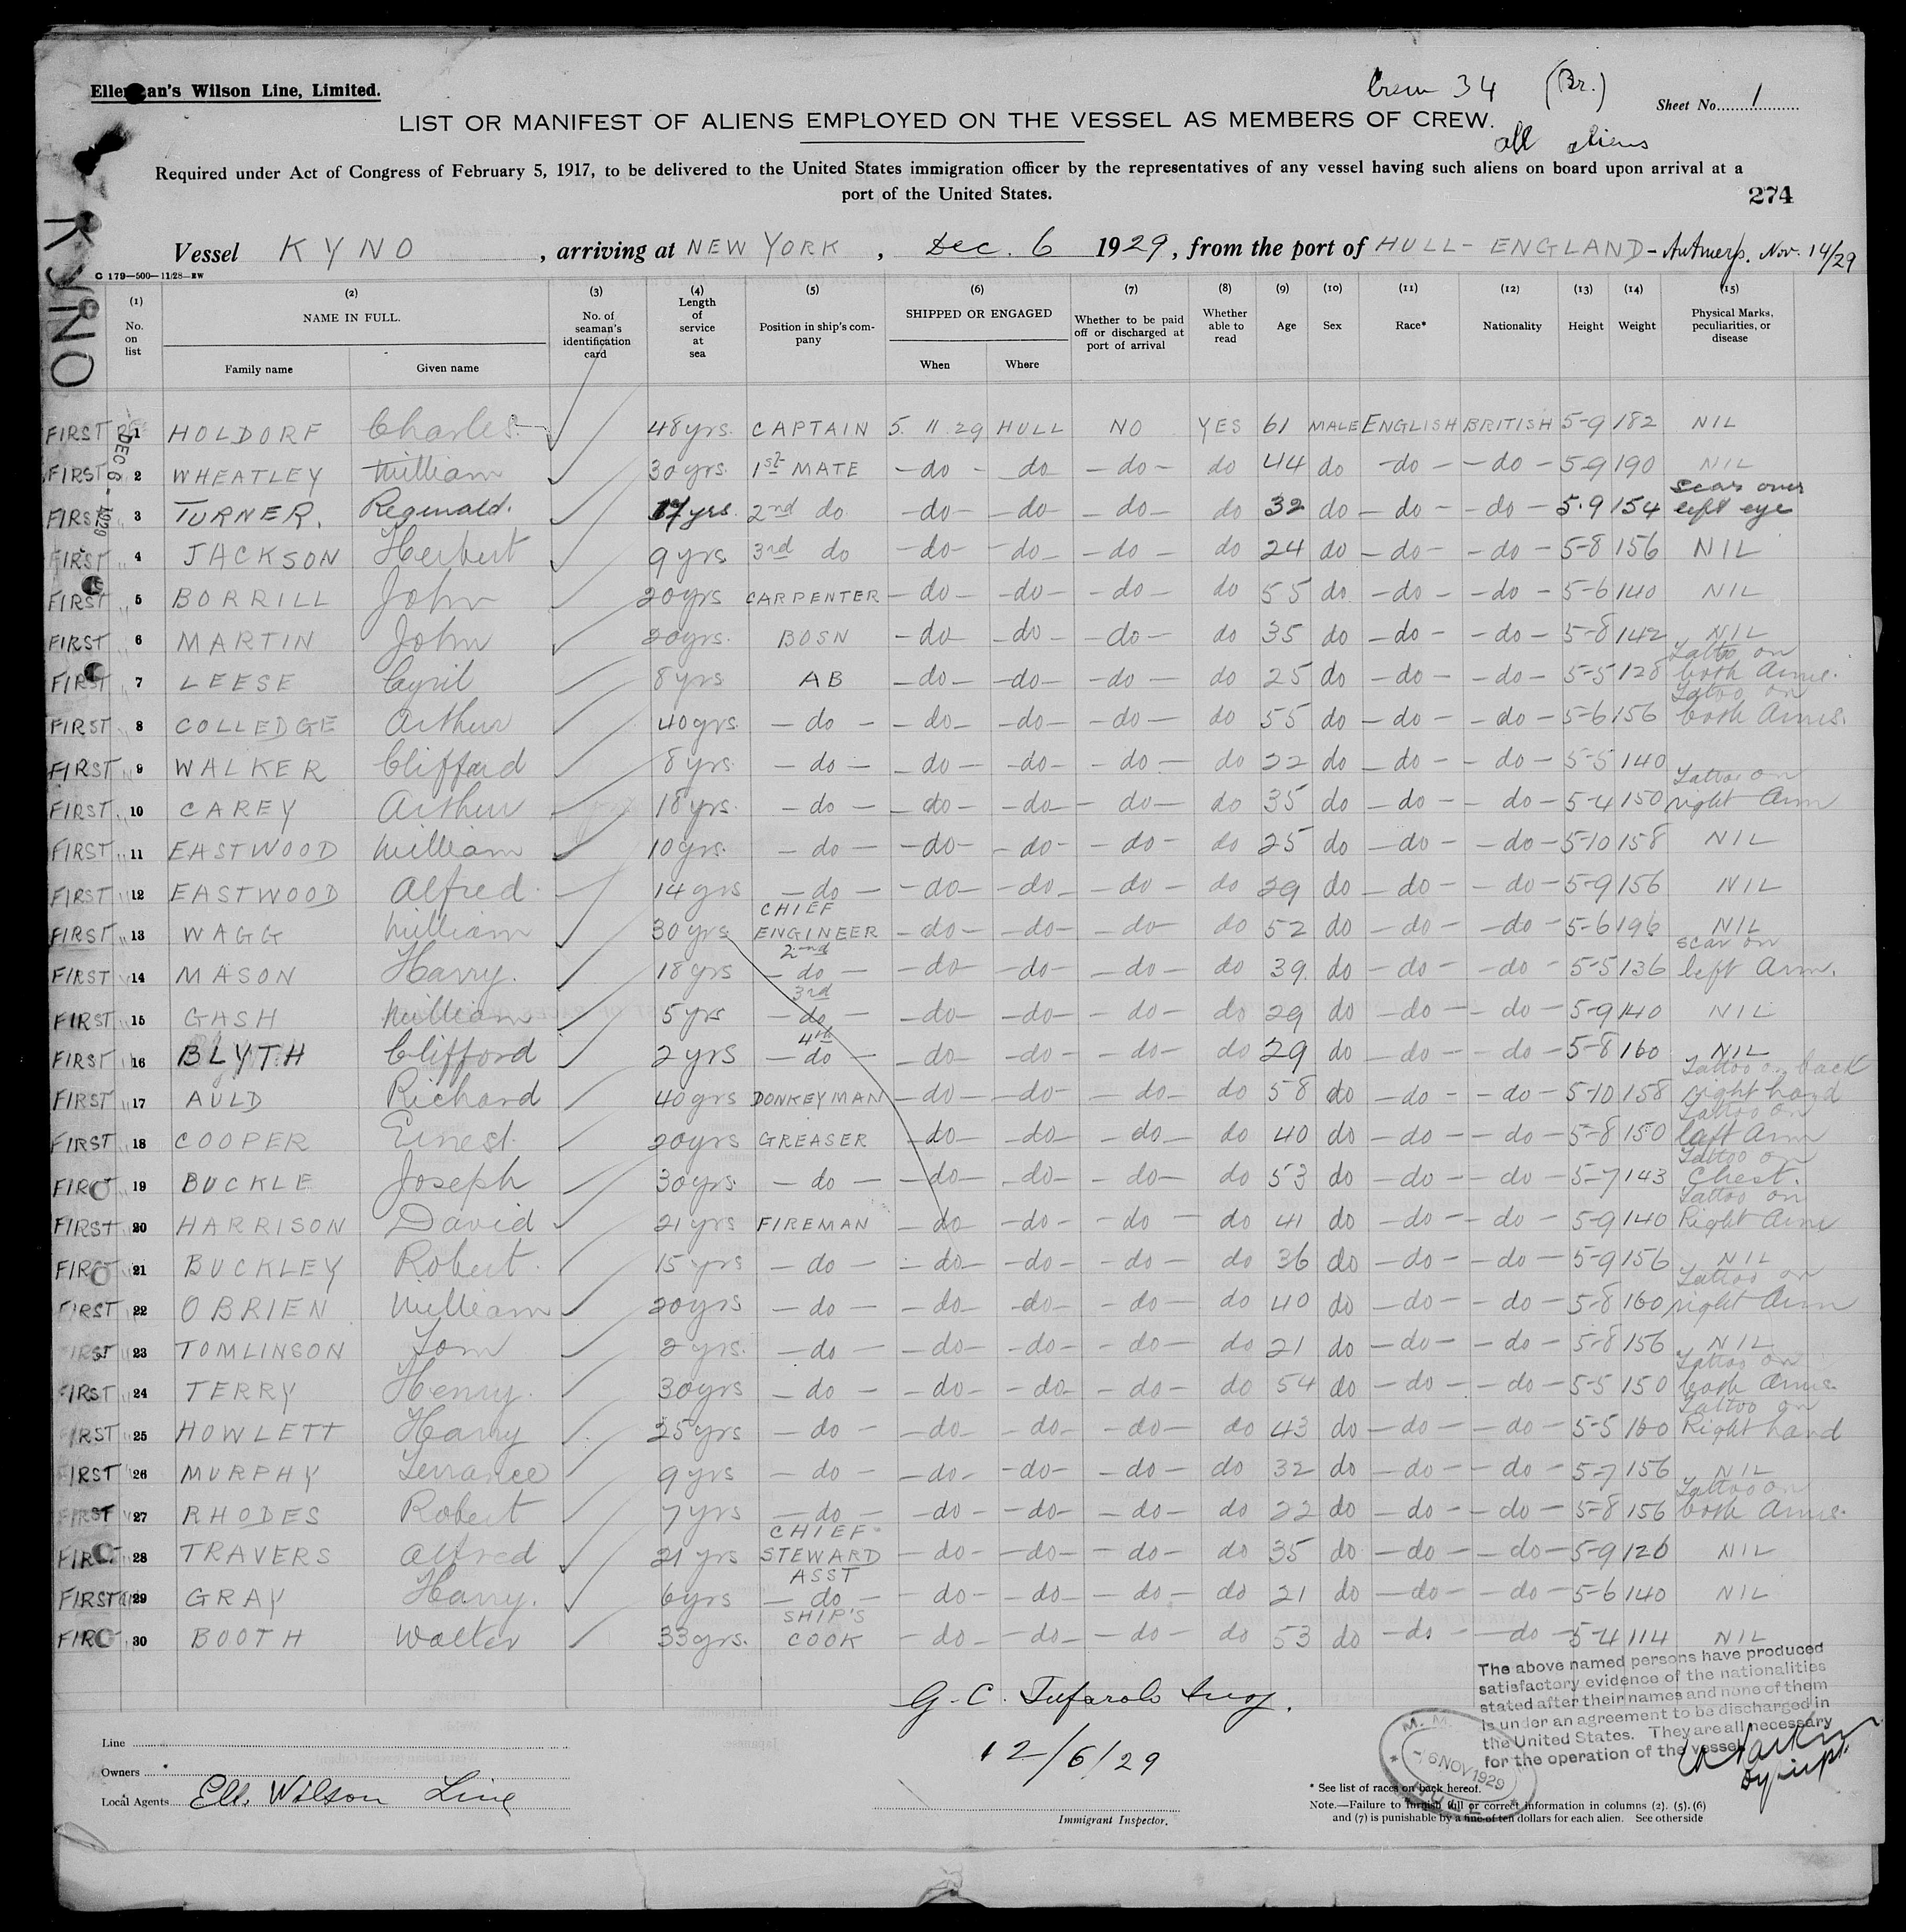 Ellerman's Wilson Line, Limited.
Crew 34 (Br.)
Sheet No. 1
LIST OR MANIFEST OF ALIENS EMPLOYED ON THE VESSEL AS MEMBERS OF CREW.
all aliens
Required under Act of Congress of February 5, 1917, to be delivered to the United States immigration officer by the representatives of any vessel having such aliens on board upon arrival at a
port of the United States.
274
KYNO
Vessel KYNO, arriving at NEW YORK, Dec. 6 1929, from the port of HULL - ENGLAND - Antwerp. Nov. 14/29
G 179—500—11/28—EW
(1) No. on list (2) NAME IN FULL. Family name Given name (3) No. of seaman's identification card (4) Length of service at sea (5) Position in ship's company (6) SHIPPED OR ENGAGED When Where (7) Whether to be paid off or discharged at port of arrival (8) Whether able to read (9) Age (10) Sex (11) Race* (12) Nationality (13) Height (14) Weight (15) Physical Marks, peculiarities, or disease
DEC 6 - 1929
FIRST 1 HOLDORF Charles 48 yrs. CAPTAIN 5. 11. 29 HULL NO YES 61 MALE ENGLISH BRITISH 5-9 182 NIL
FIRST 2 WHEATLEY William 30 yrs. 1st MATE -do- do -do- do 44 do -do- -do- 5-9 190 NIL
FIRST 3 TURNER. Reginald. 17 yrs. 2nd do -do- -do- -do- do 32 do -do- -do- 5.9 154 scar over left eye
FIRST 4 JACKSON Herbert 9 yrs 3rd do -do- -do- -do- do 24 do -do- -do- 5-8 156 NIL
FIRST 5 BORRILL John 20 yrs CARPENTER -do- -do- -do- do 55 do -do- -do- 5-6 140 NIL
FIRST 6 MARTIN John 20 yrs. BOSN -do- -do- -do- do 35 do -do- -do- 5-8 142 NIL
FIRST 7 LEESE Cyril 8 yrs AB -do- -do- -do- do 25 do -do- -do- 5-5 128 Tattoo on both Arms.
FIRST 8 COLLEDGE Arthur 40 yrs. -do- -do- -do- -do- do 55 do -do- -do- 5-6 156 Tattoo on both Arms.
FIRST 9 WALKER Clifford 8 yrs. -do- -do- -do- -do- do 22 do -do- -do- 5-5 140
FIRST 10 CAREY Arthur 18 yrs. -do- -do- -do- -do- do 35 do -do- -do- 5-4 150 Tattoo on right Arm
FIRST 11 EASTWOOD William 10 yrs. -do- -do- -do- -do- do 25 do -do- -do- 5-10 158 NIL
FIRST 12 EASTWOOD Alfred. 14 yrs -do- -do- -do- -do- do 29 do -do- -do- 5-9 156 NIL
FIRST 13 WAGG William 30 yrs CHIEF ENGINEER -do- -do- -do- do 52 do -do- -do- 5-6 196 NIL
FIRST 14 MASON Harry. 18 yrs 2nd -do- -do- -do- -do- do 39. do -do- -do- 5-5 136 scar on left Arm.
FIRST 15 GASH William 5 yrs 3rd -do- -do- -do- -do- do 29 do -do- -do- 5-9 140 NIL
FIRST 16 BLYTH Clifford 2 yrs 4th -do- -do- -do- -do- do 29 do -do- -do- 5-8 160 NIL
FIRST 17 AULD Richard 40 yrs DONKEYMAN -do- -do- -do- do 58 do -do- -do- 5-10 158 Tattoo on back right hand
FIRST 18 COOPER Ernest. 20 yrs GREASER -do- -do- -do- do 40 do -do- -do- 5-8 150 Tattoo on left Arm
FIRST 19 BUCKLE Joseph 30 yrs. -do- -do- -do- -do- do 53 do -do- -do- 5-7 143 Tattoo on Chest.
FIRST 20 HARRISON David 21 yrs FIREMAN -do- -do- -do- do 41 do -do- -do- 5-9 140 Tattoo on Right Arm
FIRST 21 BUCKLEY Robert. 15 yrs -do- -do- -do- -do- do 36 do -do- -do- 5-9 156 NIL
FIRST 22 OBRIEN William 20 yrs -do- -do- -do- -do- do 40 do -do- -do- 5-8 160 Tattoo on right Arm
FIRST 23 TOMLINSON Tom 2 yrs. -do- -do- -do- -do- do 21 do -do- -do- 5-8 156 NIL
FIRST 24 TERRY Henry. 30 yrs -do- -do- -do- -do- do 54 do -do- -do- 5-5 150 Tattoo on both Arms.
FIRST 25 HOWLETT Harry 25 yrs -do- -do- -do- -do- do 43 do -do- -do- 5-5 160 Tattoo on Right hand
FIRST 26 MURPHY Terrance 9 yrs -do- -do- -do- -do- do 32 do -do- -do- 5-7 156 NIL
FIRST 27 RHODES Robert 7 yrs -do- -do- -do- -do- do 22 do -do- -do- 5-8 156 Tattoo on both Arms.
FIRST 28 TRAVERS Alfred 21 yrs CHIEF STEWARD -do- -do- -do- do 35 do -do- -do- 5-9 126 NIL
FIRST 29 GRAY Harry. 6 yrs ASST -do- -do- -do- -do- do 21 do -do- -do- 5-6 140 NIL
FIRST 30 BOOTH Walter 33 yrs. SHIP'S COOK -do- -do- -do- do 53 do -do- -do- 5-4 114 NIL
The above named persons have produced
satisfactory evidence of the nationalities
stated after their names and none of them
is under an agreement to be discharged in
the United States. They are all necessary
for the operation of the vessel.
G. C. Tufarolo Insp.
12/6/29
M. M.
- 6 NOV 1929
HULL
Line
Owners
Local Agents Ell. Wilson Line
Immigrant Inspector.
* See list of races on back hereof.
Note.—Failure to furnish full or correct information in columns (2). (5). (6)
and (7) is punishable by a fine of ten dollars for each alien. See otherside